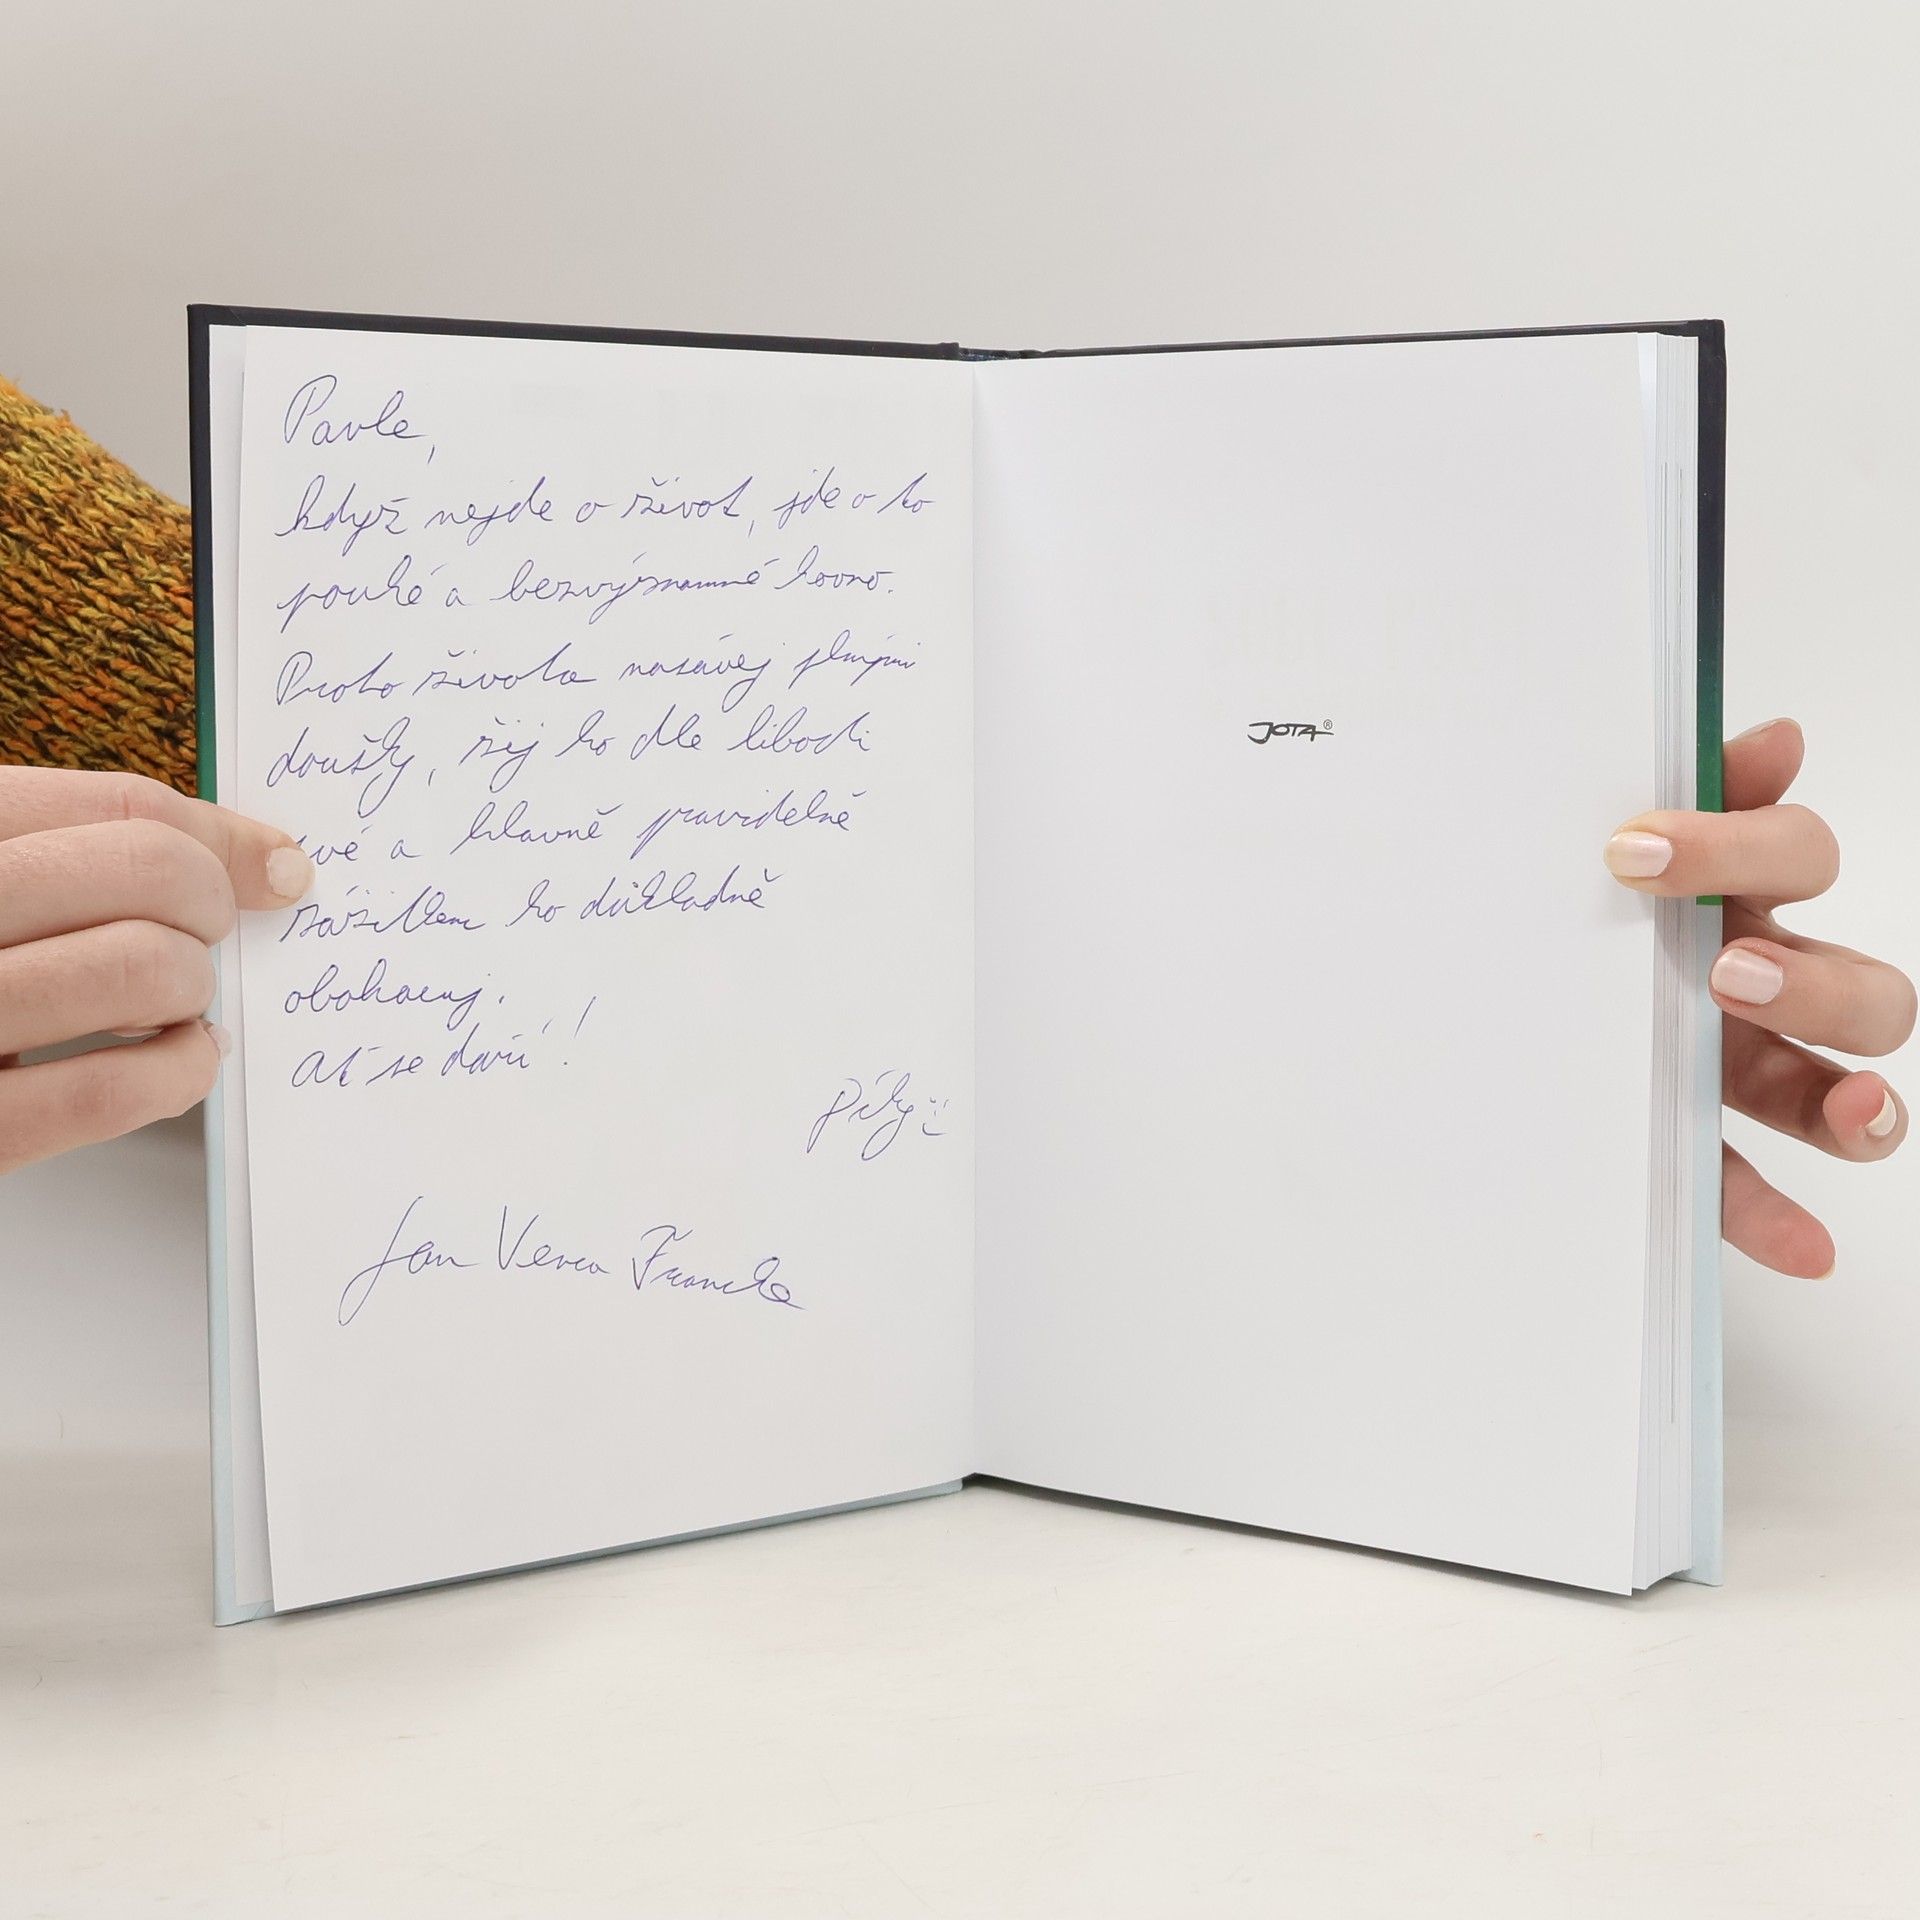 Pavle,
když nejde o život, jde o to
pouhé a bezvýznamné hovno.
Proto života nasávej plnými
doušky, žij ho dle libosti
své a hlavně pravidelně
zážitkem ho důkladně
obohacuj.
Ať se daří!
Jan Venca Francke
JOTA®